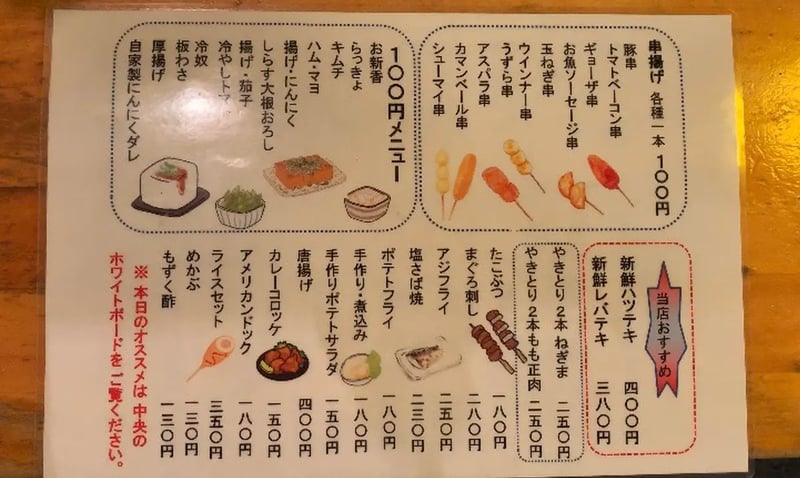 串揚げ 各種一本 100円
豚串
トマトベーコン串
ギョーザ串
お魚ソーセージ串
玉ねぎ串
ウインナー串
うずら串
アスパラ串
カマンベール串
シューマイ串
100円メニュー
お新香
らっきょ
キムチ
ハム・マヨ
揚げ・にんにく
しらす大根おろし
揚げ・茄子
冷やしトマト
冷奴
板わさ
厚揚げ
自家製にんにくダレ
当店おすすめ
新鮮ハツテキ 四〇〇円
新鮮レバテキ 三八〇円
やきとり2本 ねぎま 二五〇円
やきとり2本もも正肉 二五〇円
たこぶつ 一八〇円
まぐろ刺し 二八〇円
アジフライ 二五〇円
塩さば焼 二三〇円
ポテトフライ 一八〇円
手作り・煮込み 一八〇円
手作りポテトサラダ 一五〇円
唐揚げ 四〇〇円
カレーコロッケ 一五〇円
アメリカンドック 一八〇円
ライスセット 三五〇円
めかぶ 一三〇円
もずく酢 一三〇円
※ 本日のオススメは 中央の
ホワイトボードをご覧ください。